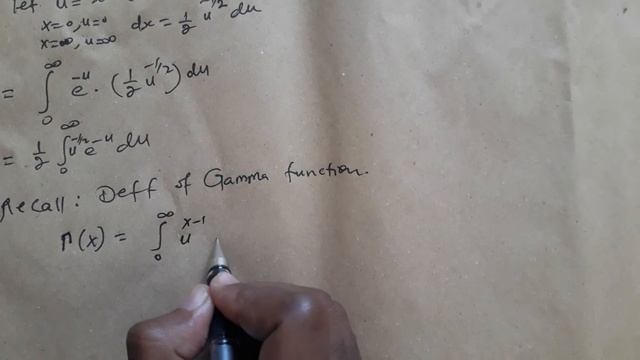 Let u = x
x=0, u=0 dx = 1/2 u^{-1/2} du
x=∞, u=∞
= ∫_0^∞ e^{-u} · (1/2 u^{-1/2}) du
= 1/2 ∫_0^∞ u^{-1/2} e^{-u} du
Recall: Deff of Gamma function.
Γ(x) = ∫_0^∞ u^{x-1}